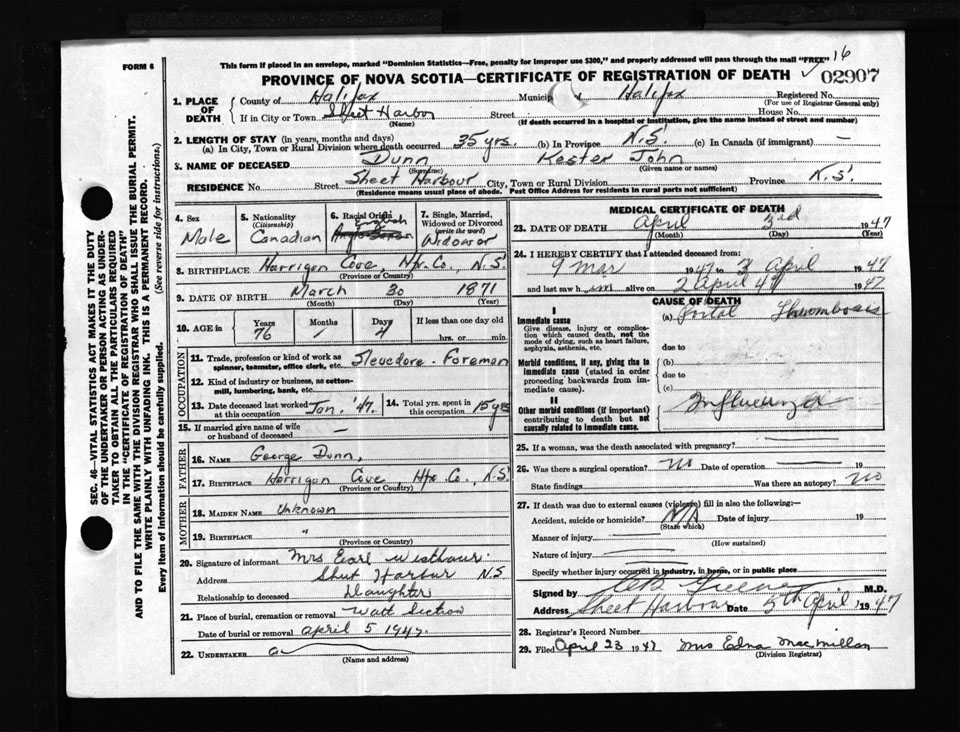 FORM 6
This form if placed in an envelope, marked "Dominion Statistics—Free, penalty for improper use $300," and properly addressed will pass through the mail "FREE"
16
PROVINCE OF NOVA SCOTIA—CERTIFICATE OF REGISTRATION OF DEATH
✓ 02907
1. PLACE OF DEATH
County of Halifax Municip of Halifax Registered No.
(For use of Registrar General only)
If in City or Town Sheet Harbor Street House No.
(Name) (If death occurred in a hospital or institution, give the name instead of street and number)
2. LENGTH OF STAY (in years, months and days)
(a) In City, Town or Rural Division where death occurred 35 yrs. (b) In Province N.S. (c) In Canada (if immigrant) —
3. NAME OF DECEASED Dunn Kester John
(Surname) (Given name or names)
RESIDENCE No. Street Sheet Harbour City, Town or Rural Division Province N.S.
(Residence means usual place of abode. Post Office Address for residents in rural parts not sufficient)
4. Sex Male
5. Nationality (Citizenship) Canadian
6. Racial Origin English
7. Single, Married, Widowed or Divorced (write the word) Widower
8. BIRTHPLACE Harrigan Cove, Hfx. Co., N.S.
(Province or Country)
9. DATE OF BIRTH March 30 1871
(Month) (Day) (Year)
10. AGE in Years Months Days If less than one day old
76 1 4 hrs. or min.
OCCUPATION
11. Trade, profession or kind of work as spinner, teamster, office clerk, etc. Stevedore. Foreman
12. Kind of industry or business, as cotton-mill, lumbering, bank, etc.
13. Date deceased last worked at this occupation Jan. '47.
14. Total yrs. spent in this occupation 15 yrs
15. If married give name of wife or husband of deceased —
FATHER
16. NAME George Dunn,
17. BIRTHPLACE Harrigan Cove, Hfx. Co., N.S.
(Province or Country)
MOTHER
18. MAIDEN NAME Unknown
19. BIRTHPLACE "
(Province or Country)
20. Signature of informant Mrs Earl Westhaver.
Address Sheet Harbur N.S.
Relationship to deceased Daughter
21. Place of burial, cremation or removal Watt Section
Date of burial or removal April 5 1947.
22. UNDERTAKER
(Name and address)
MEDICAL CERTIFICATE OF DEATH
23. DATE OF DEATH April 3rd 1947
(Month) (Day) (Year)
24. I HEREBY CERTIFY that I attended deceased from:
9 Mar 1947 to 3 April 1947
and last saw him alive on 2 April 47 1947
CAUSE OF DEATH
I
Immediate cause (a) Portal Thrombosis
Give disease, injury or complication which caused death, not the mode of dying, such as heart failure, asphyxia, asthenia, etc.
due to
Morbid conditions, if any, giving rise to immediate cause (stated in order proceeding backwards from immediate cause).
(b)
due to
(c)
II
Other morbid conditions (if important) contributing to death but not causally related to immediate cause.
Influenza
25. If a woman, was the death associated with pregnancy?
26. Was there a surgical operation? no Date of operation 19
State findings Was there an autopsy? no
27. If death was due to external causes (violence) fill in also the following:—
Accident, suicide or homicide? N/A Date of injury 19
(State which)
Manner of injury
(How sustained)
Nature of injury
Specify whether injury occurred in industry, in home, or in public place
Signed by M.D.
Address Sheet Harbour Date 5th April 1947
28. Registrar's Record Number
29. Filed April 23 1947 Mrs Edna MacMillan
(Division Registrar)
SEC. 46—VITAL STATISTICS ACT MAKES IT THE DUTY
OF THE UNDERTAKER OR PERSON ACTING AS UNDER-
TAKER TO OBTAIN ALL THE PARTICULARS REQUIRED
IN THE "CERTIFICATE OF REGISTRATION OF DEATH"
AND TO FILE THE SAME WITH THE DIVISION REGISTRAR WHO SHALL ISSUE THE BURIAL PERMIT.
WRITE PLAINLY WITH UNFADING INK. THIS IS A PERMANENT RECORD.
Every item of information should be carefully supplied. (See reverse side for instructions.)